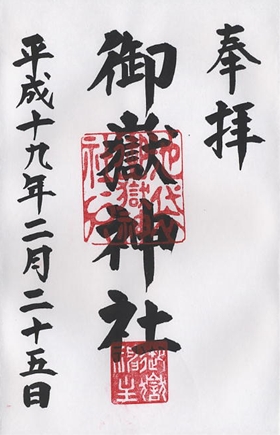 奉拝
御嶽神社
平成十九年二月二十五日